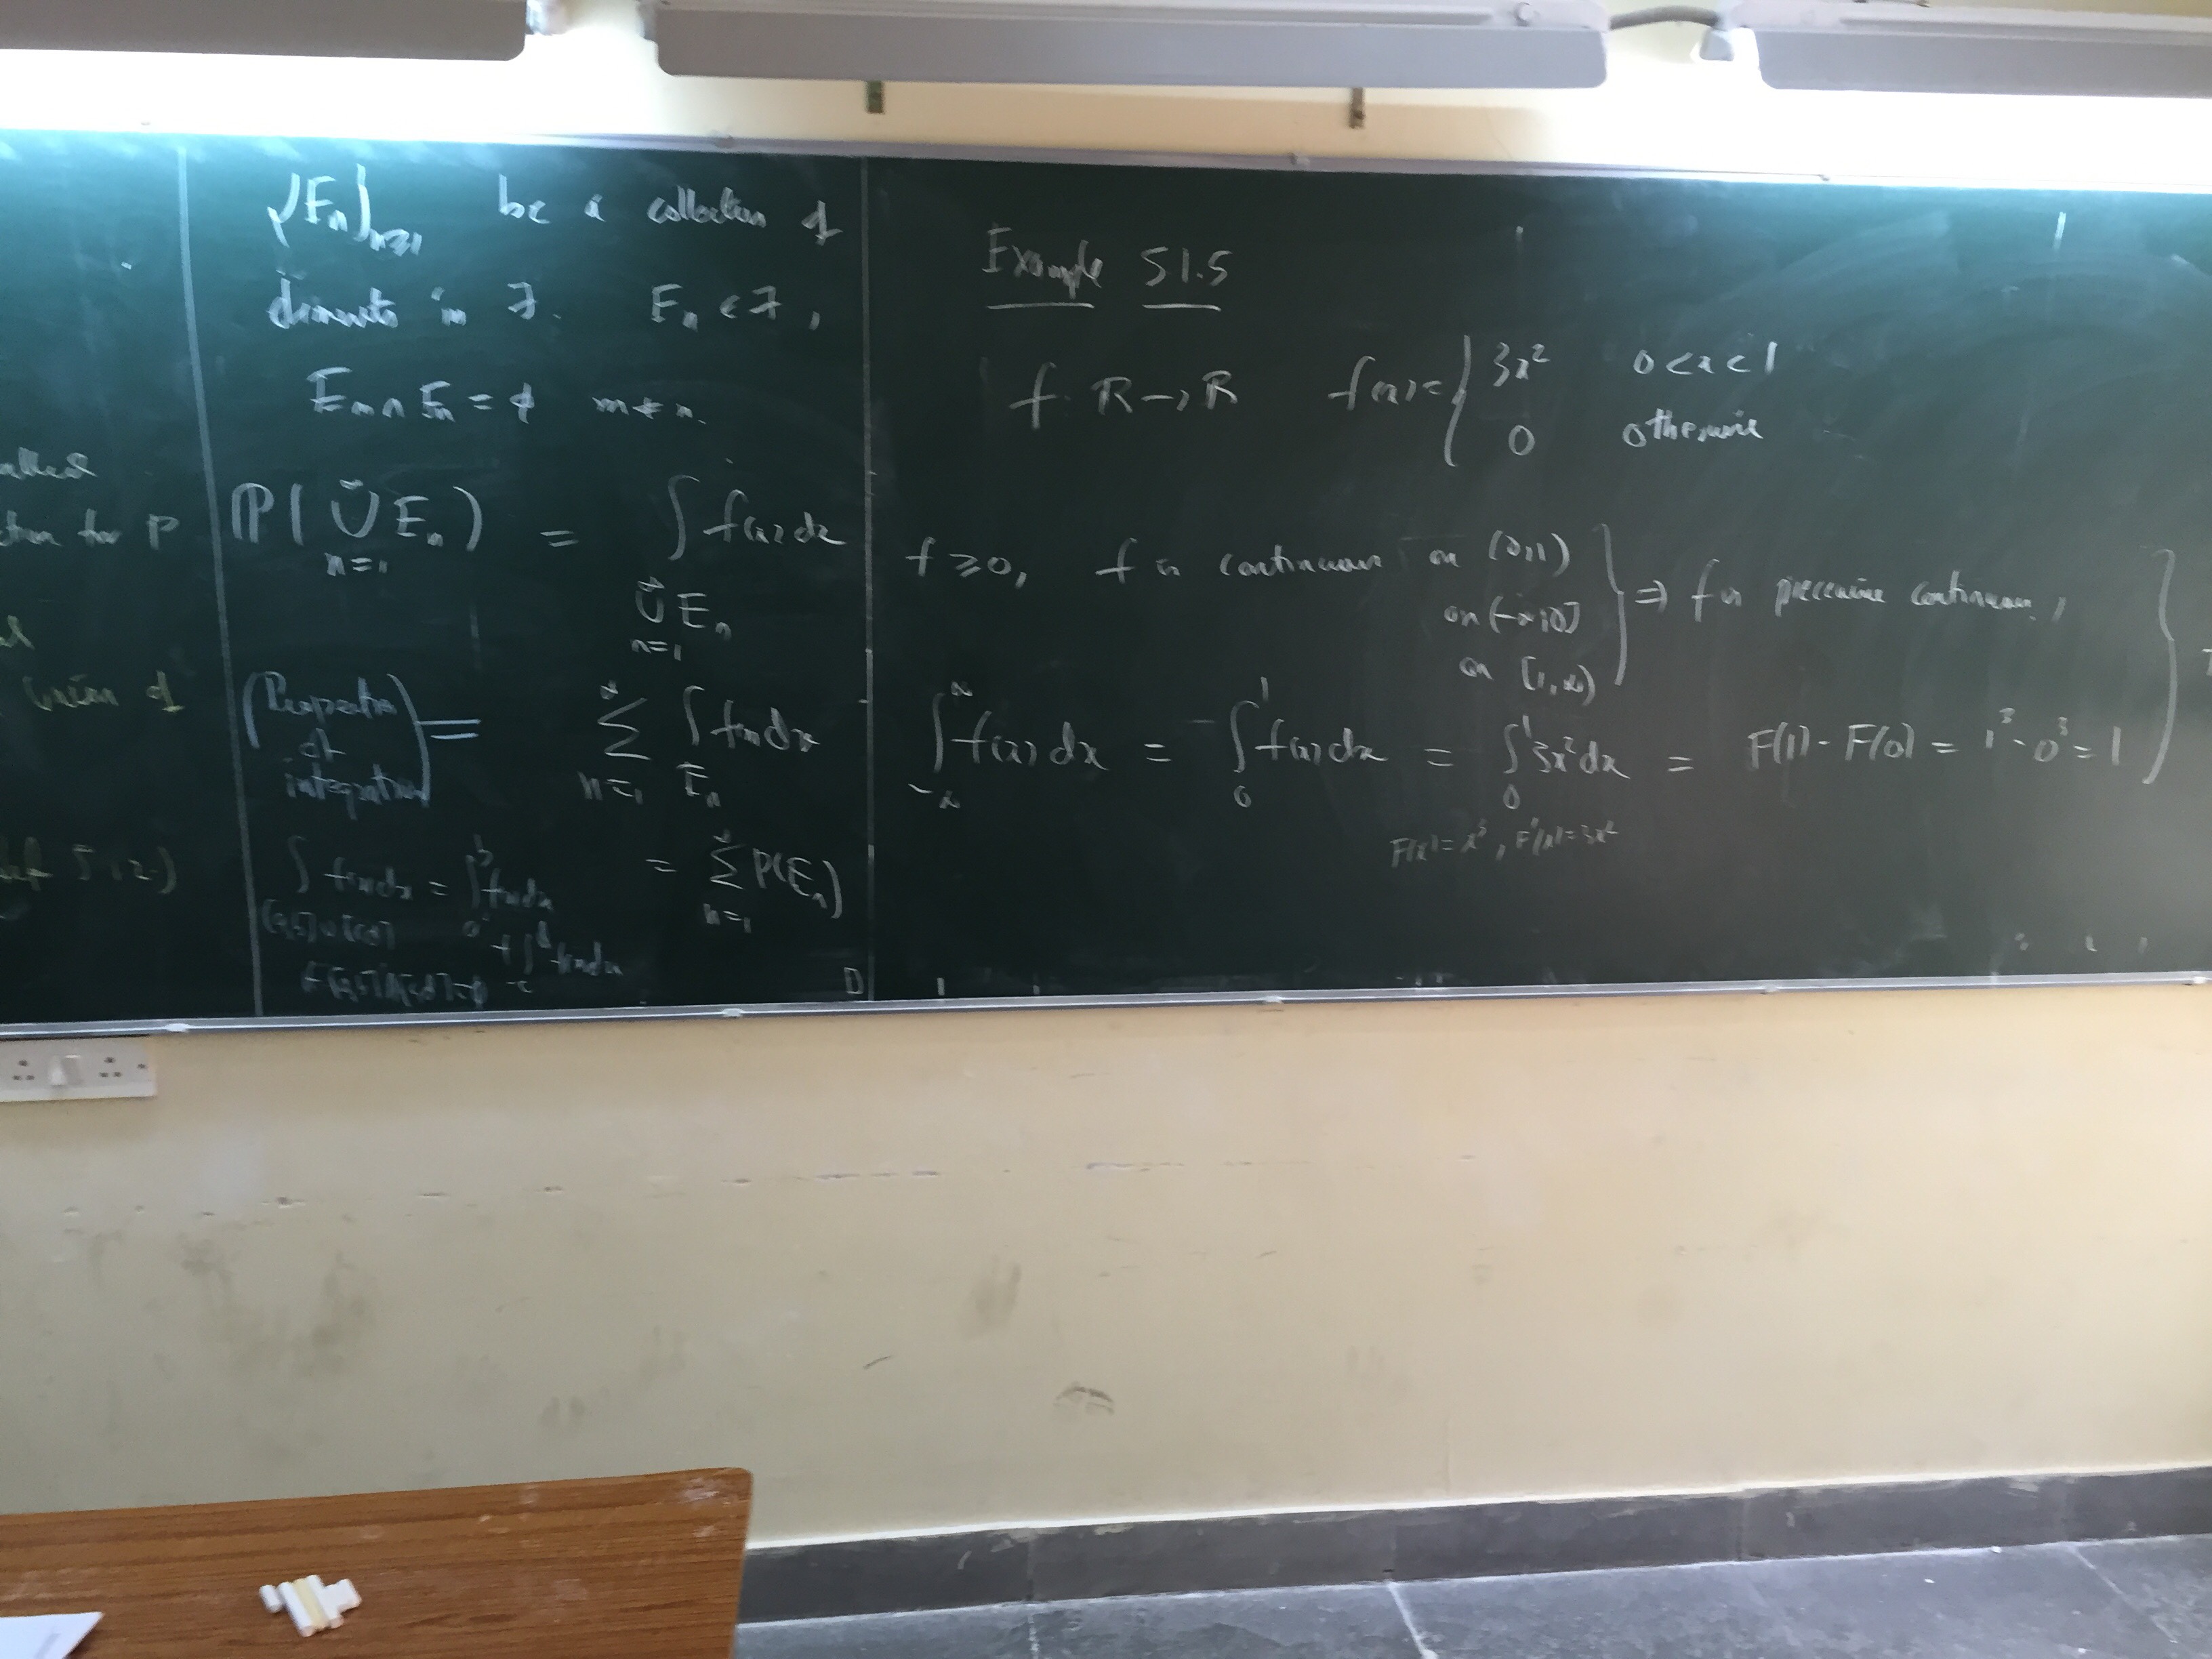 tion for P
union of
{E_n}_{n≥1} be a collection of
elements in ℱ. E_n ∈ ℱ,
E_m ∩ E_n = ϕ m ≠ n.
ℙ(∪_{n=1}^∞ E_n) = ∫_{∪_{n=1}^∞ E_n} f(x) dx
(Properties of integration) = Σ_{n=1}^∞ ∫_{E_n} f(x) dx
= Σ_{n=1}^∞ P(E_n)
∫_{[a,b]∪[c,d]} f(x) dx = ∫_a^b f(x) dx
+ ∫_c^d f(x) dx
[a,b]∩[c,d]=ϕ
Example 51.5
f: ℝ → ℝ f(x) = { 3x² 0<x<1
0 otherwise
f ≥ 0, f is continuous on (0,1)
on (-∞,0]
on [1,∞) } ⇒ f is piecewise continuous,
∫_{-∞}^∞ f(x) dx = ∫_0^1 f(x) dx = ∫_0^1 3x² dx = F(1) - F(0) = 1³ - 0³ = 1
F(x) = x³, F'(x) = 3x²